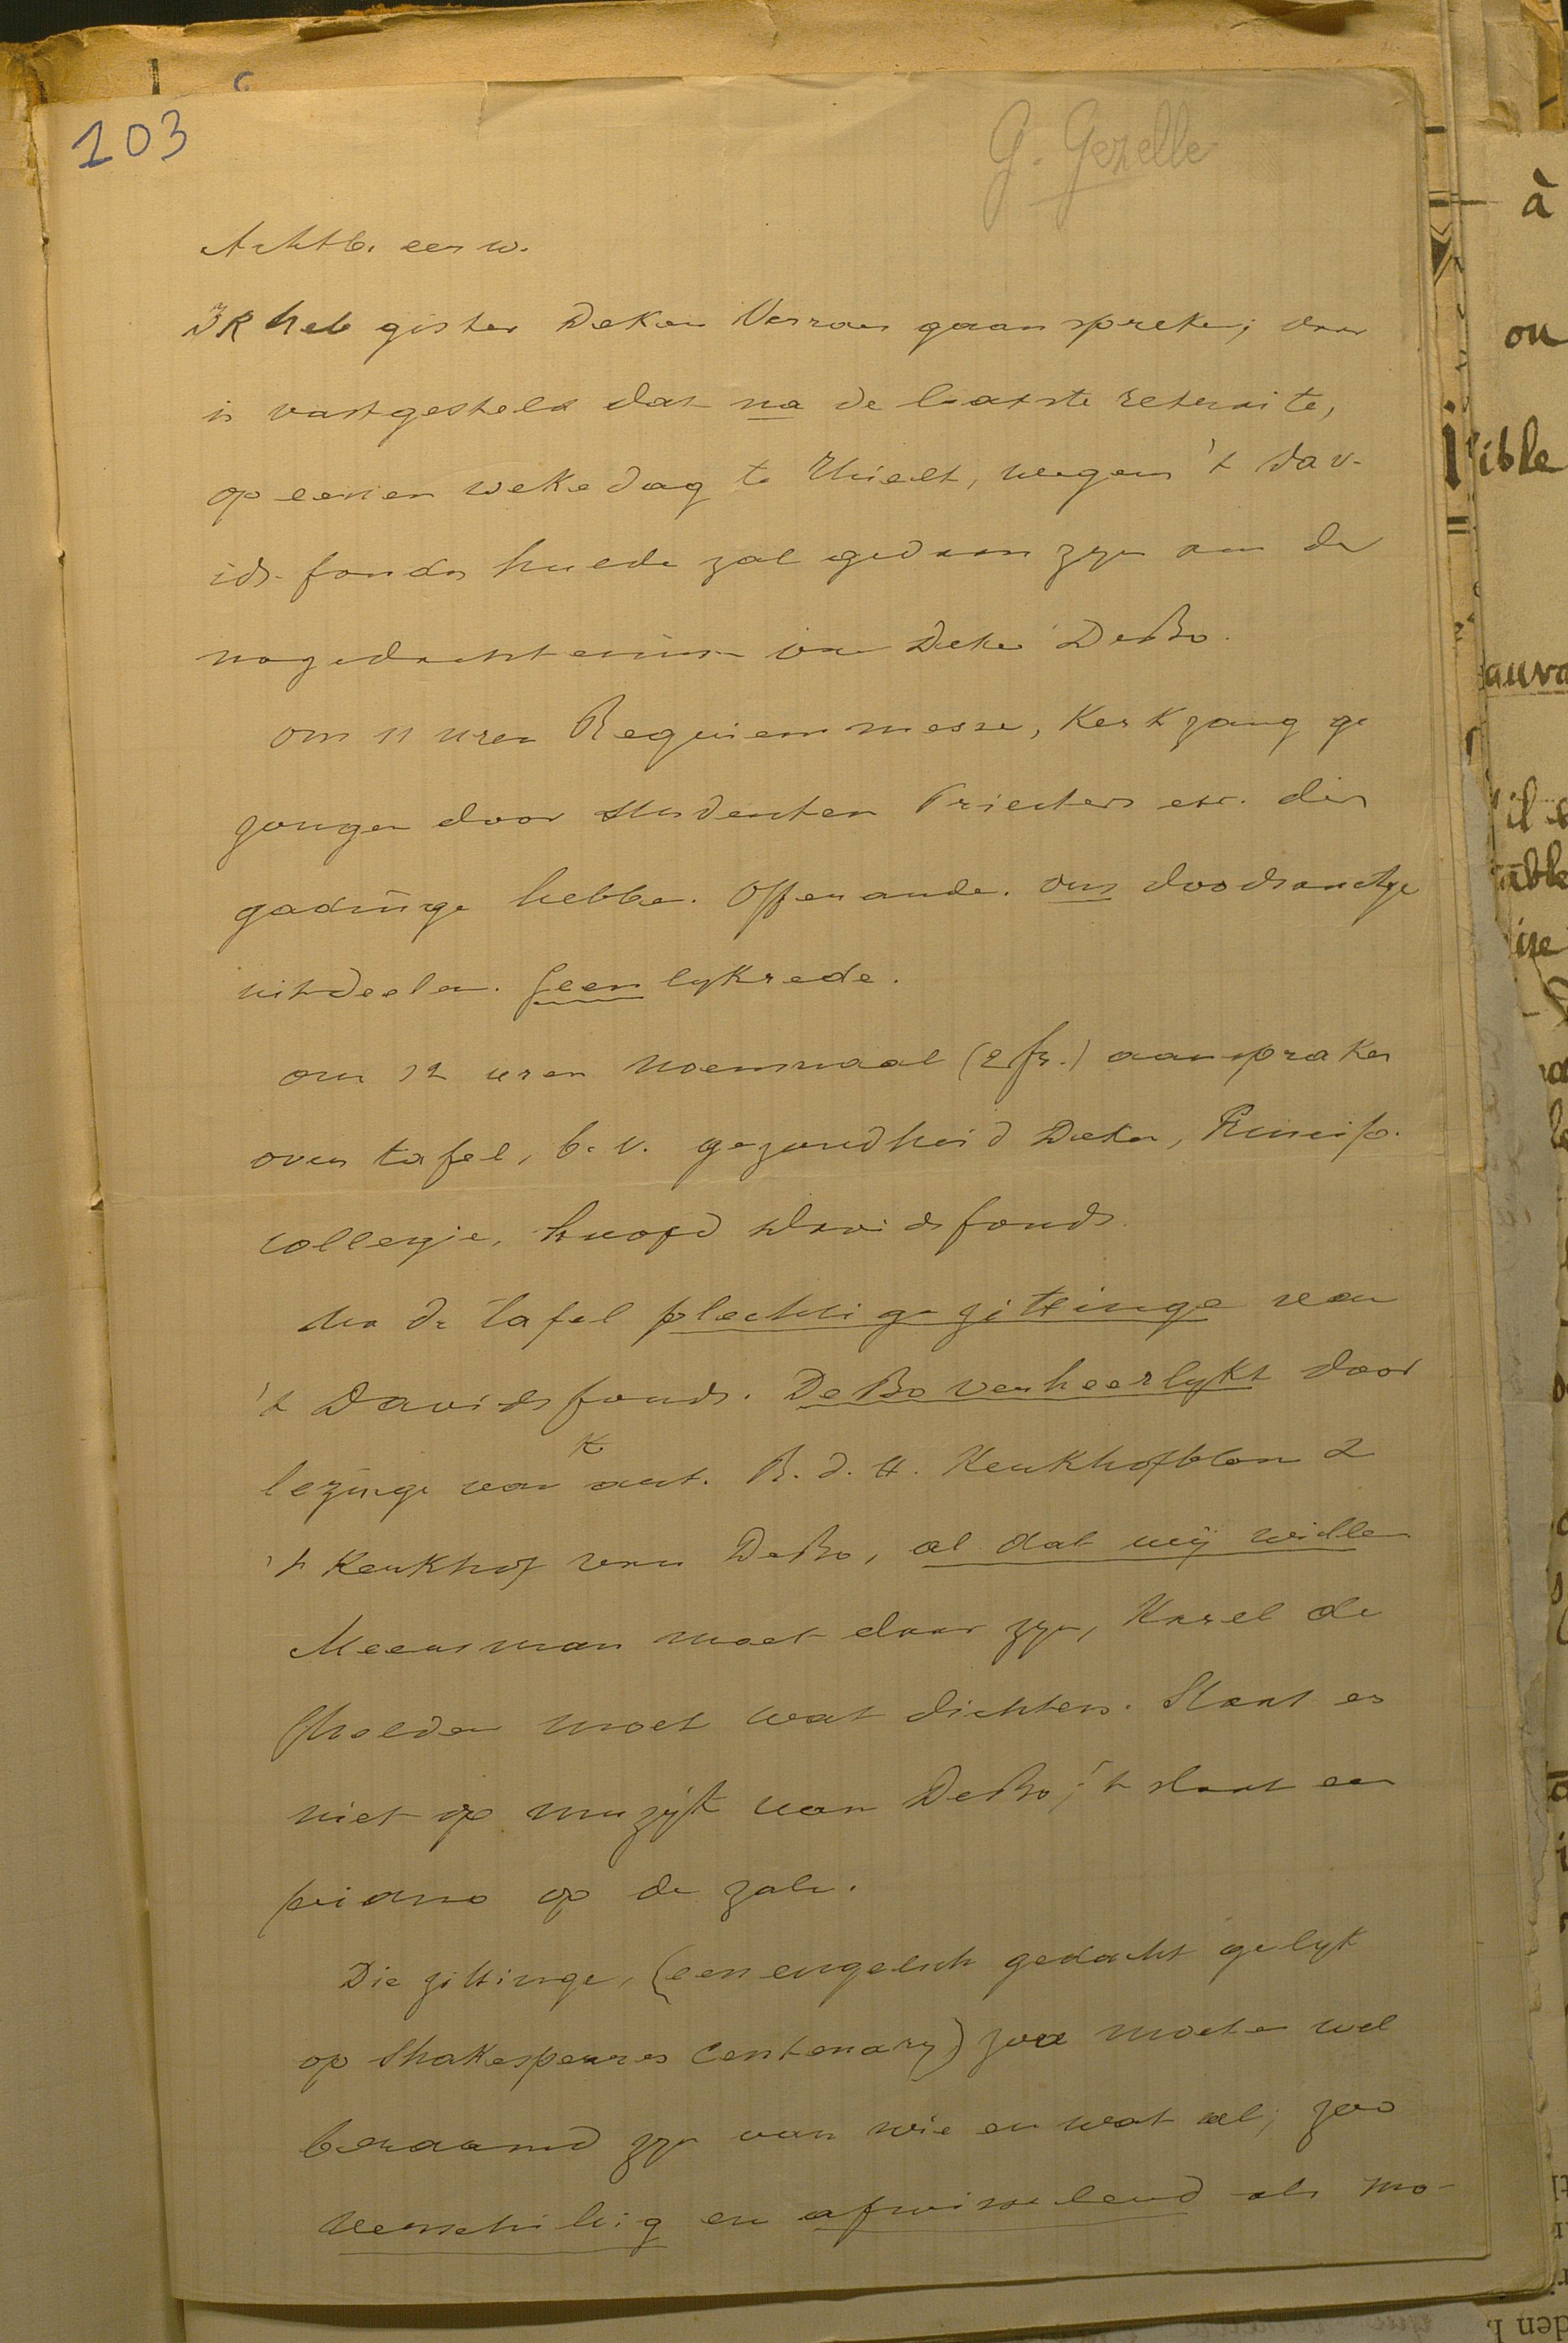 103
G. Gezelle
Achtb. eerw.
Ik heb gister Deken Verraes gaan spreken; daar
is vastgesteld dat na de laatste retraite,
op eenen wekedag te Thielt, wegens 't Dav-
ids-fonds hulde zal gedaan zyn aan de
nagedachtenisse van Deken DeBo.
om 11 uren Requiemmesse, Kerkzang ge
zongen door studenten Priesters enz. die
gadinge hebben. Offerande. ons doodsantje
uitdeelen. Geen lykrede.
om 12 uren Noenmaal (2 fr.) aanspraken
over tafel, b.v. gezondheid Deken, Princip.
collegie, hoofd Davidsfonds.
Na de tafel plechtige zittinge van
't Davidsfonds. DeBo verheerlykt door
lezinge van K
ant. R. d. H. Kerkhofblom &
't Kerkhof van DeBo, al dat wij willen
Meersman moet daar zyn, Karel de
moet wat dichten. Staat er
niet op muzijk van DeBo; 't staat een
piano op de zale.
Die zittinge, (een engelsch gedacht gelyk
op Shakespeares Centenary) zou moeten wel
beraamd zyn van wie en wat al; zoo
verschillig en afwisselend als mo-
à
ou
ible